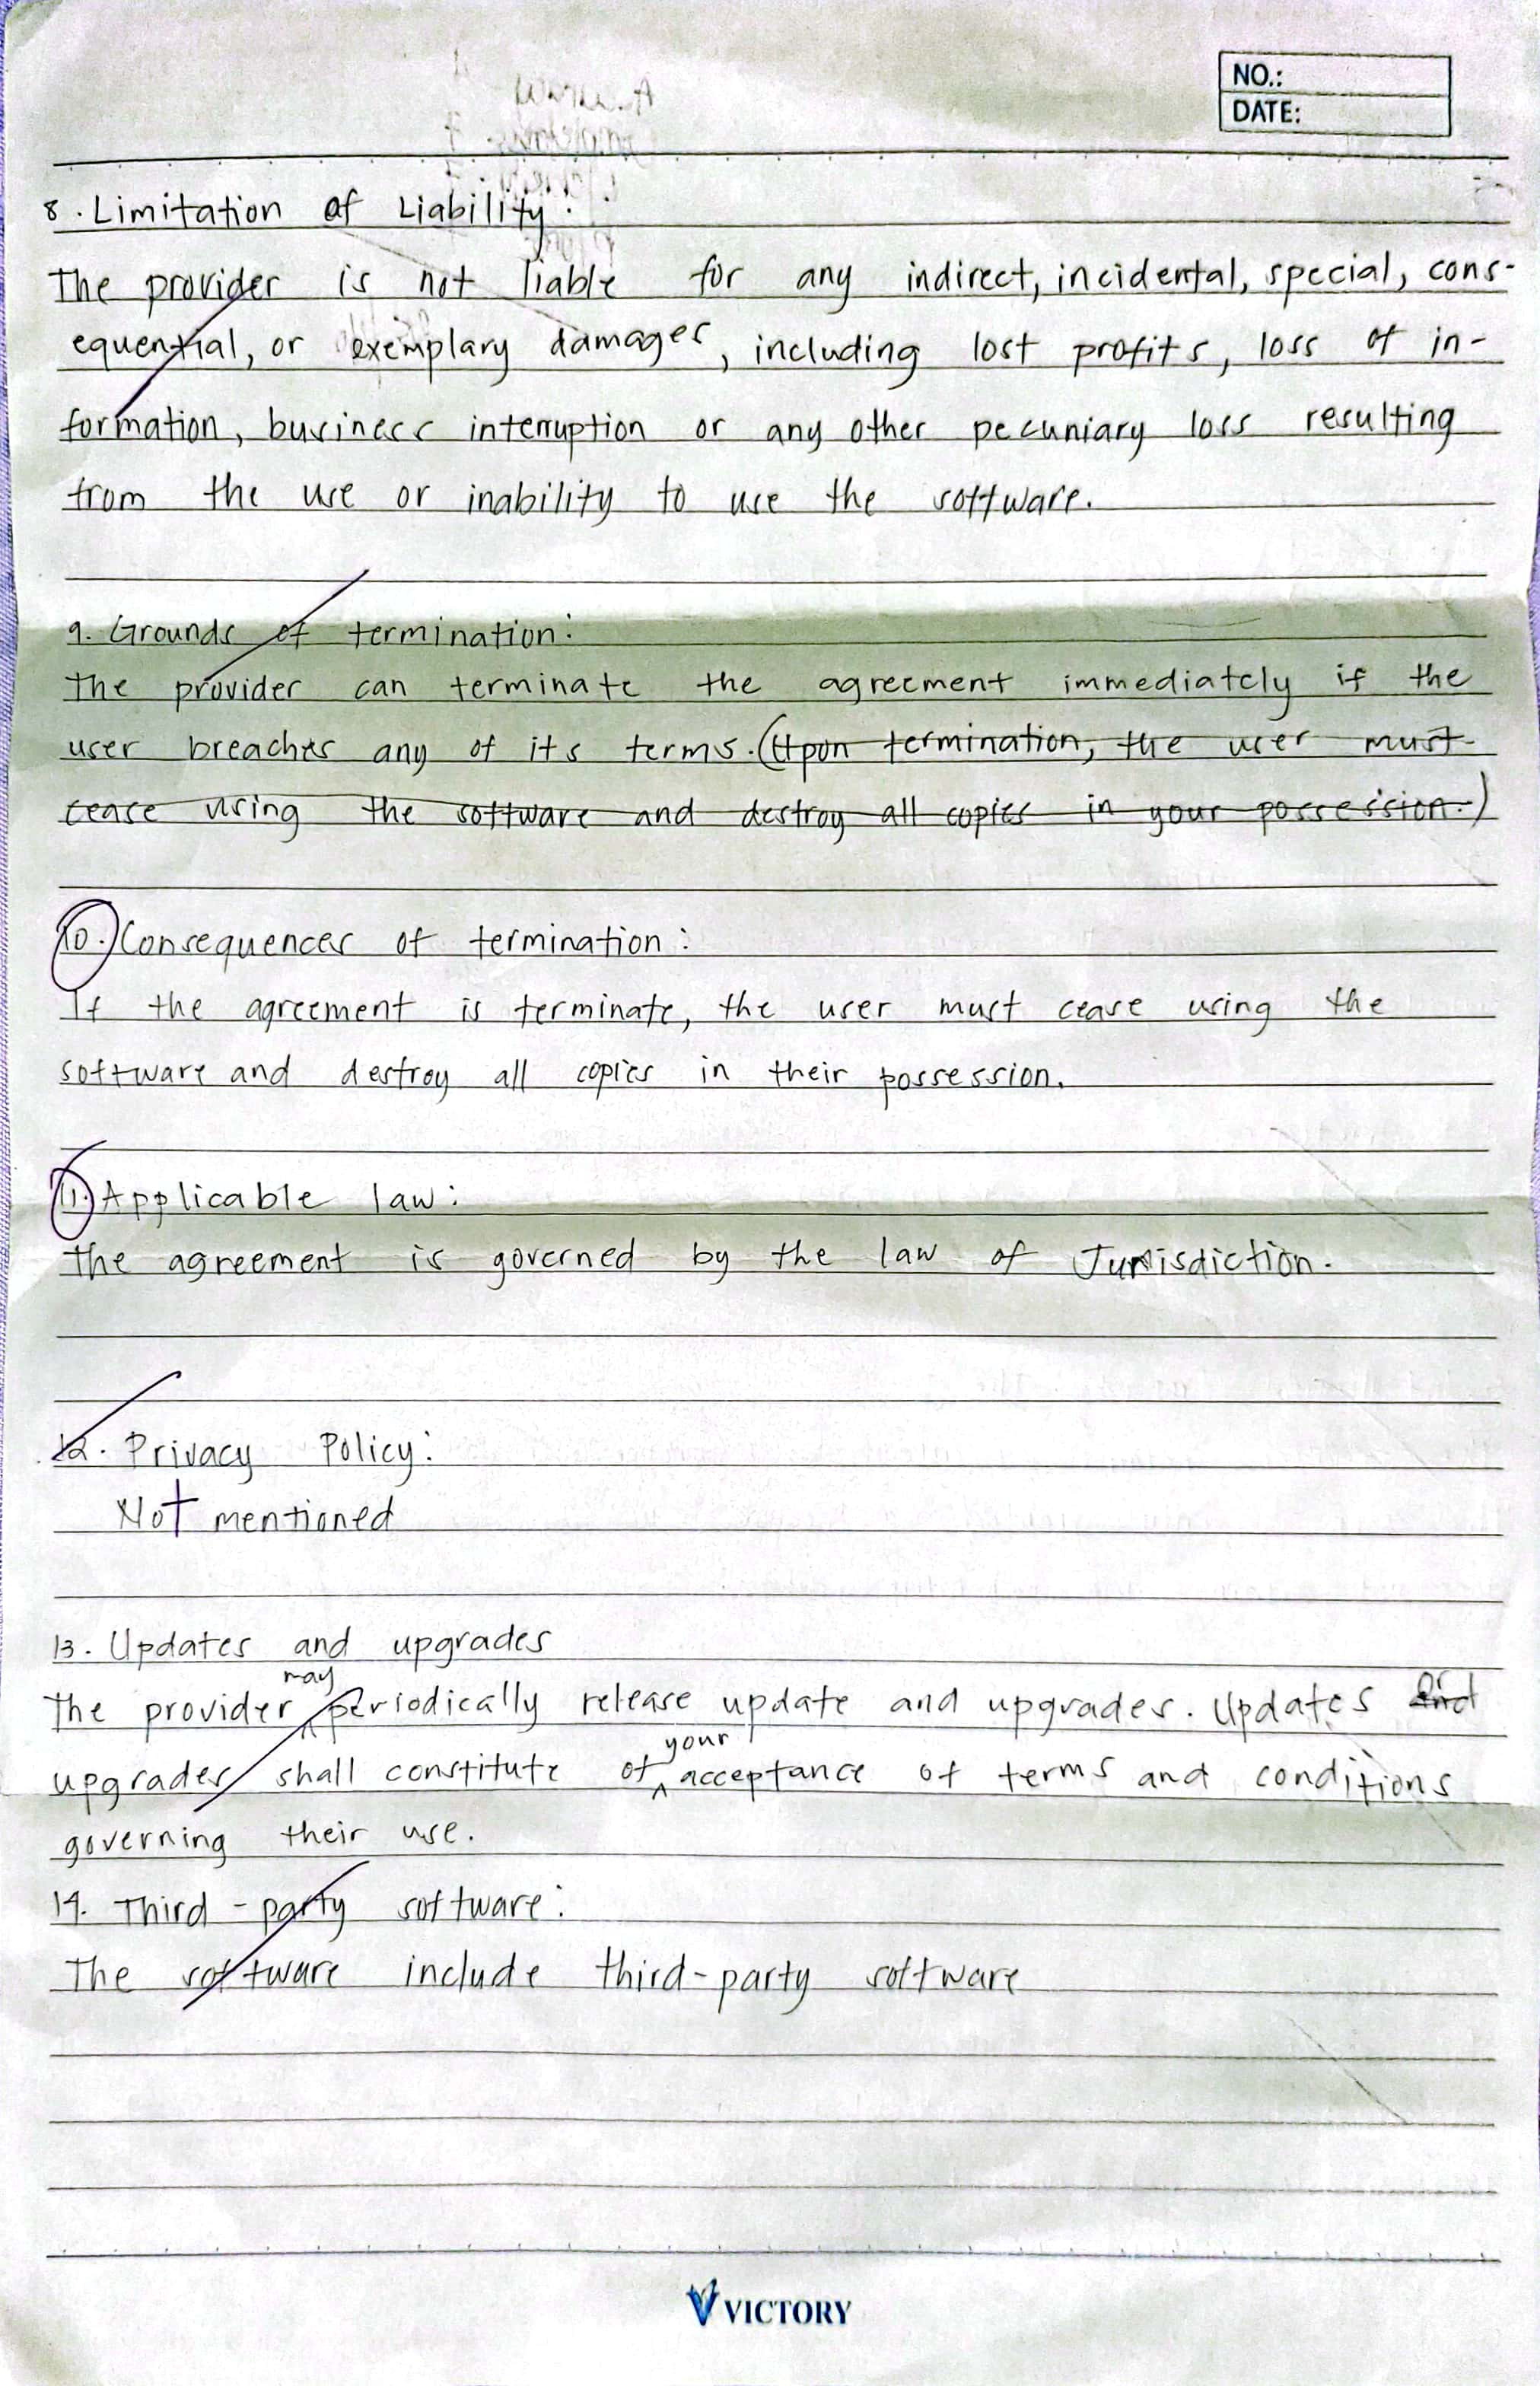 NO.:
DATE:
8. Limitation of Liability:
The provider is not liable for any indirect, incidental, special, cons-
equential, or exemplary damages, including lost profits, loss of in-
formation, business interruption or any other pecuniary loss resulting
from the use or inability to use the software.
9. Grounds of termination:
The provider can terminate the agreement immediately if the
user breaches any of its terms. (Upon termination, the user must
cease using the software and destroy all copies in your possession.)
10. Consequences of termination:
If the agreement is terminate, the user must cease using the
software and destroy all copies in their possession.
11. Applicable law:
The agreement is governed by the law of Jurisdiction.
12. Privacy Policy:
Not mentioned
13. Updates and upgrades
The provider may periodically release update and upgrades. Updates or
upgrades shall constitute of your acceptance of terms and conditions
governing their use.
14. Third-party software:
The software include third-party software
VICTORY